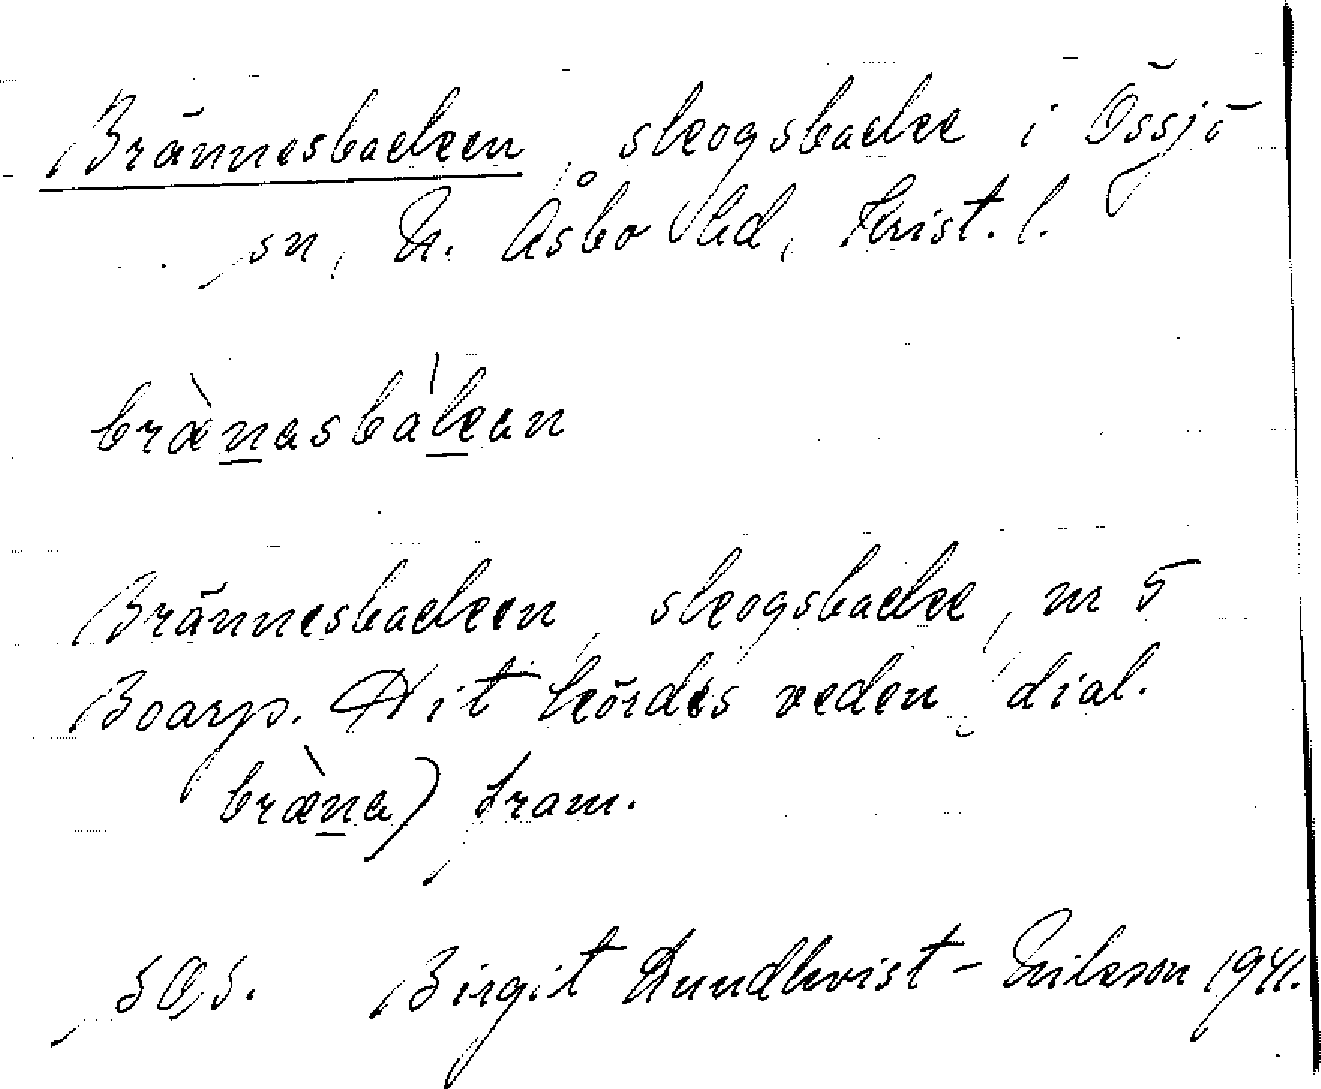 Brännesbacken, skogsbacke i Össjö
sn, N. Åsbo hd, Krist. l.
bræ̀nasbàkan
Brännesbacken, skogsbacke, nr 5
Boarp. Hit kördes veden (dial.
bræ̀na) fram.
SOS. Birgit Lundkvist-Nilsson 1941.